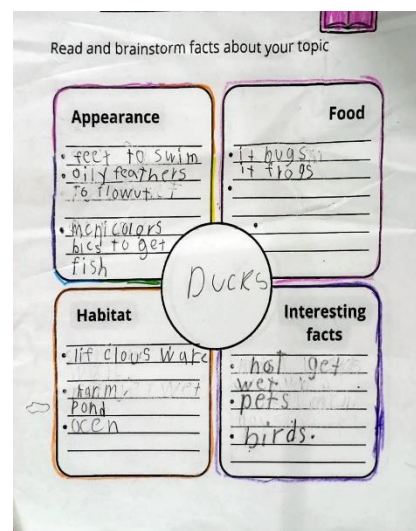 Read and brainstorm facts about your topic
Appearance
• feet to swim
• oily feathers
to flowut
• menicolors
bics to get
fish
Food
• it bugs
it frogs
•
•
DUCKS
Habitat
• lif clous ware
• harm
Pond
• ocen
Interesting
facts
• not get
wet
• pets
• birds.